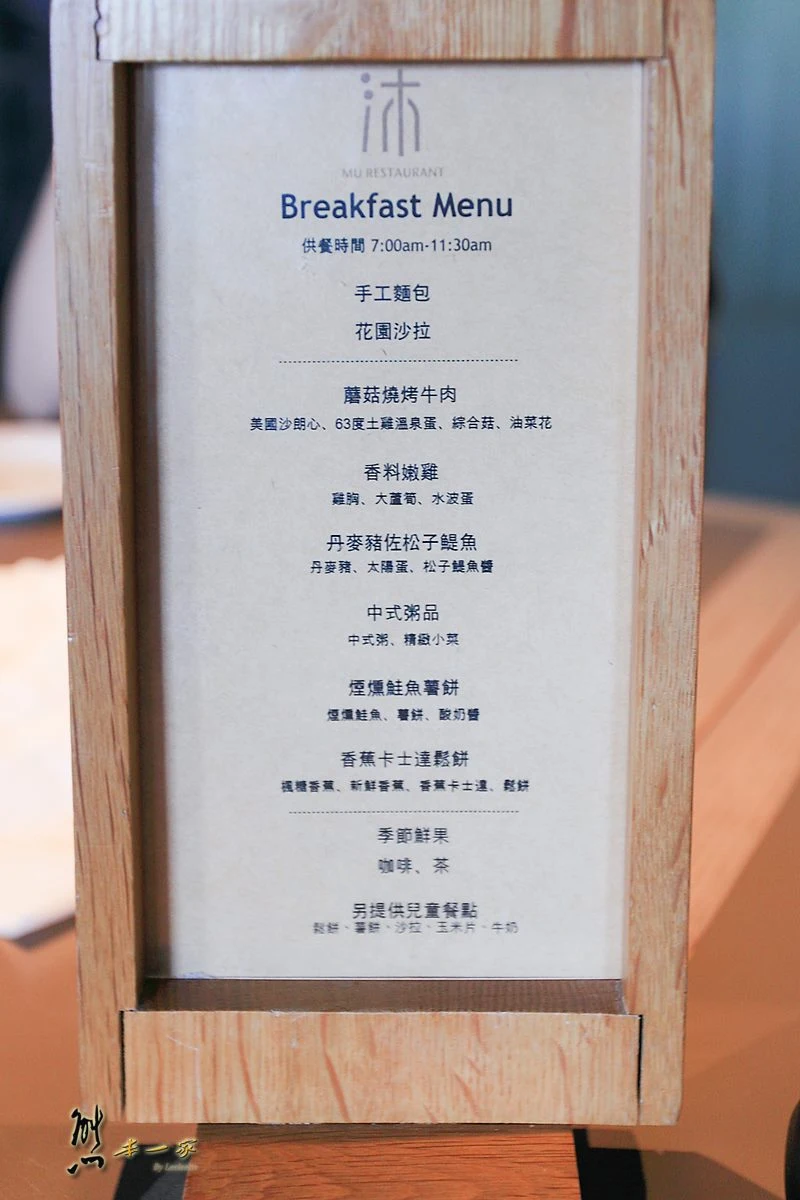 沐
MU RESTAURANT
Breakfast Menu
供餐時間 7:00am-11:30am
手工麵包
花園沙拉
蘑菇燒烤牛肉
美國沙朗心、63度土雞溫泉蛋、綜合菇、油菜花
香料嫩雞
雞胸、大蘆筍、水波蛋
丹麥豬佐松子鯷魚
丹麥豬、太陽蛋、松子鯷魚醬
中式粥品
中式粥、精緻小菜
煙燻鮭魚薯餅
煙燻鮭魚、薯餅、酸奶醬
香蕉卡士達鬆餅
楓糖香蕉、新鮮香蕉、香蕉卡士達、鬆餅
季節鮮果
咖啡、茶
另提供兒童餐點
鬆餅、薯餅、沙拉、玉米片、牛奶
熊
一家